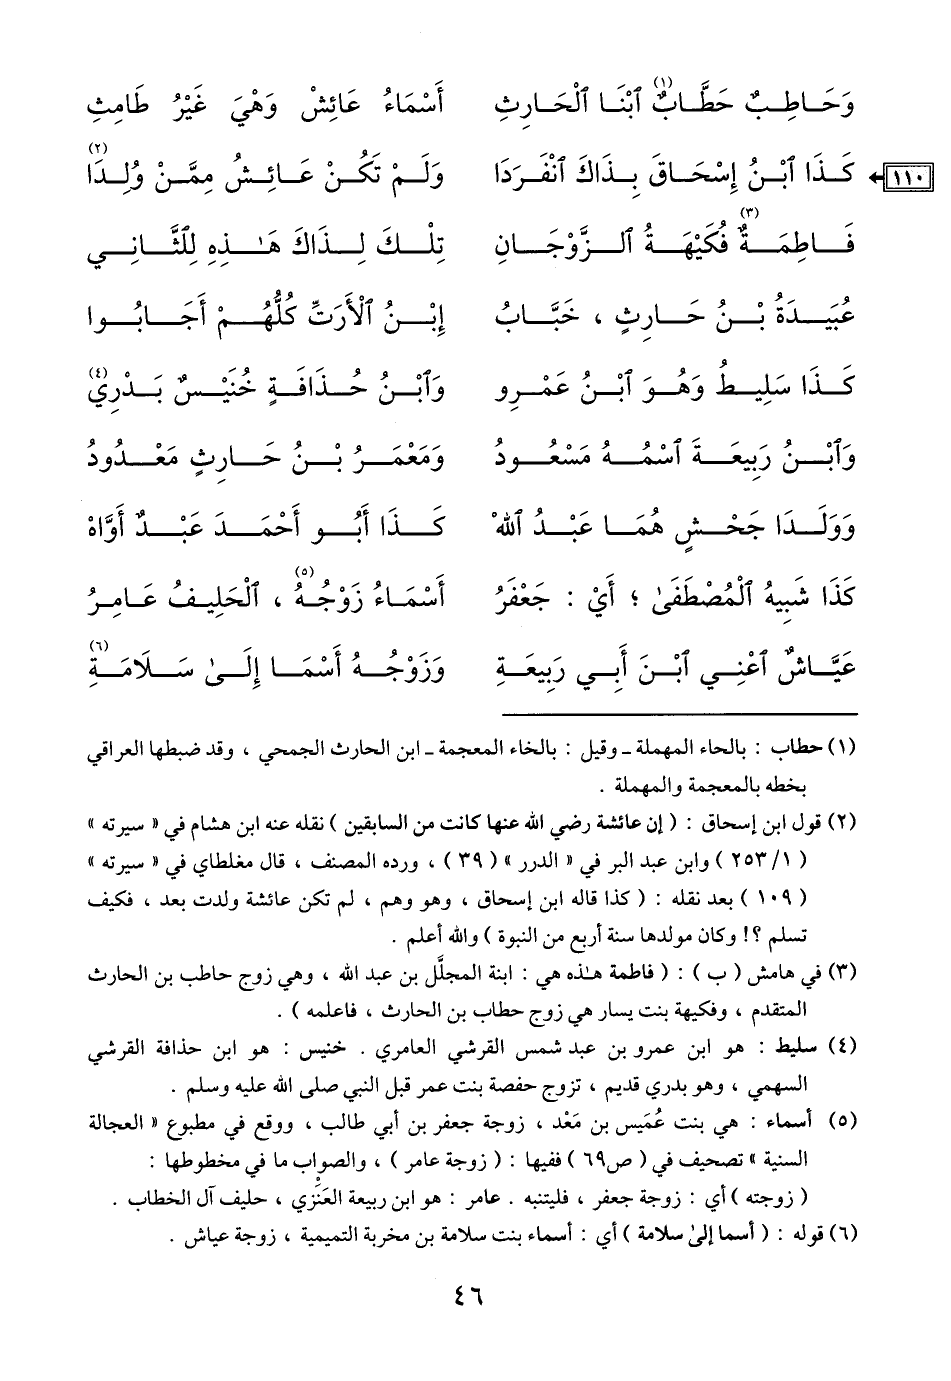 وَحَاطِبٌ حَطَّابٌ(١) ٱبْنَا ٱلْحَارِثِ أَسْمَاءُ عَائِشْ وَهْيَ غَيْرُ طَامِثِ
١١٠ كَذَا ٱبْنُ إِسْحَاقَ بِذَاكَ ٱنْفَرَدَا وَلَمْ تَكُنْ عَائِشُ مِمَّنْ وُلِدَا(٢)
فَاطِمَةٌ(٣) فُكَيْهَةُ ٱلزَّوْجَانِ تِلْكَ لِذَاكَ هَـٰذِهِ لِلثَّانِي
عُبَيْدَةُ بْنُ حَارِثٍ ، خَبَّابُ إِبْنُ ٱلْأَرَتِّ كُلُّهُمْ أَجَابُوا
كَذَا سَلِيطُ وَهُوَ ٱبْنُ عَمْرِو وَٱبْنُ حُذَافَةٍ خُنَيْسٌ بَدْرِي(٤)
وَٱبْنُ رَبِيعَةَ ٱسْمُهُ مَسْعُودُ وَمَعْمَرُ بْنُ حَارِثٍ مَعْدُودُ
وَوَلَدَا جَحْشٍ هُمَا عَبْدُ ٱللهْ كَذَا أَبُو أَحْمَدَ عَبْدٌ أَوَّاهْ
كَذَا شَبِيهُ ٱلْمُصْطَفَىٰ ؛ أَيْ : جَعْفَرُ أَسْمَاءُ زَوْجُهُ(٥) ، ٱلْحَلِيفُ عَامِرُ
عَيَّاشٌ ٱعْنِي ٱبْنَ أَبِي رَبِيعَةِ وَزَوْجُهُ أَسْمَا إِلَىٰ سَلَامَةِ(٦)
(١) حطاب : بالحاء المهملة ـ وقيل : بالخاء المعجمة ـ ابن الحارث الجمحي ، وقد ضبطها العراقي
بخطه بالمعجمة والمهملة .
(٢) قول ابن إسحاق : ( إن عائشة رضي الله عنها كانت من السابقين ) نقله عنه ابن هشام في « سيرته »
( ١/ ٢٥٣ ) وابن عبد البر في « الدرر » ( ٣٩ ) ، ورده المصنف ، قال مغلطاي في « سيرته »
( ١٠٩ ) بعد نقله : ( كذا قاله ابن إسحاق ، وهو وهم ، لم تكن عائشة ولدت بعد ، فكيف
تسلم ؟! وكان مولدها سنة أربع من النبوة ) والله أعلم .
(٣) في هامش ( ب ) : ( فاطمة هـٰذه هي : ابنة المجلَّل بن عبد الله ، وهي زوج حاطب بن الحارث
المتقدم ، وفكيهة بنت يسار هي زوج حطاب بن الحارث ، فاعلمه ) .
(٤) سليط : هو ابن عمرو بن عبد شمس القرشي العامري . خنيس : هو ابن حذافة القرشي
السهمي ، وهو بدري قديم ، تزوج حفصة بنت عمر قبل النبي صلى الله عليه وسلم .
(٥) أسماء : هي بنت عُمَيس بن مَعْد ، زوجة جعفر بن أبي طالب ، ووقع في مطبوع « العجالة
السنية » تصحيف في ( ص٦٩ ) ففيها : ( زوجة عامر ) ، والصواب ما في مخطوطها :
( زوجته ) أي : زوجة جعفر ، فليتنبه . عامر : هو ابن ربيعة العَنْزي ، حليف آل الخطاب .
(٦) قوله : ( أسما إلىٰ سلامة ) أي : أسماء بنت سلامة بن مخربة التميمية ، زوجة عياش .
٤٦